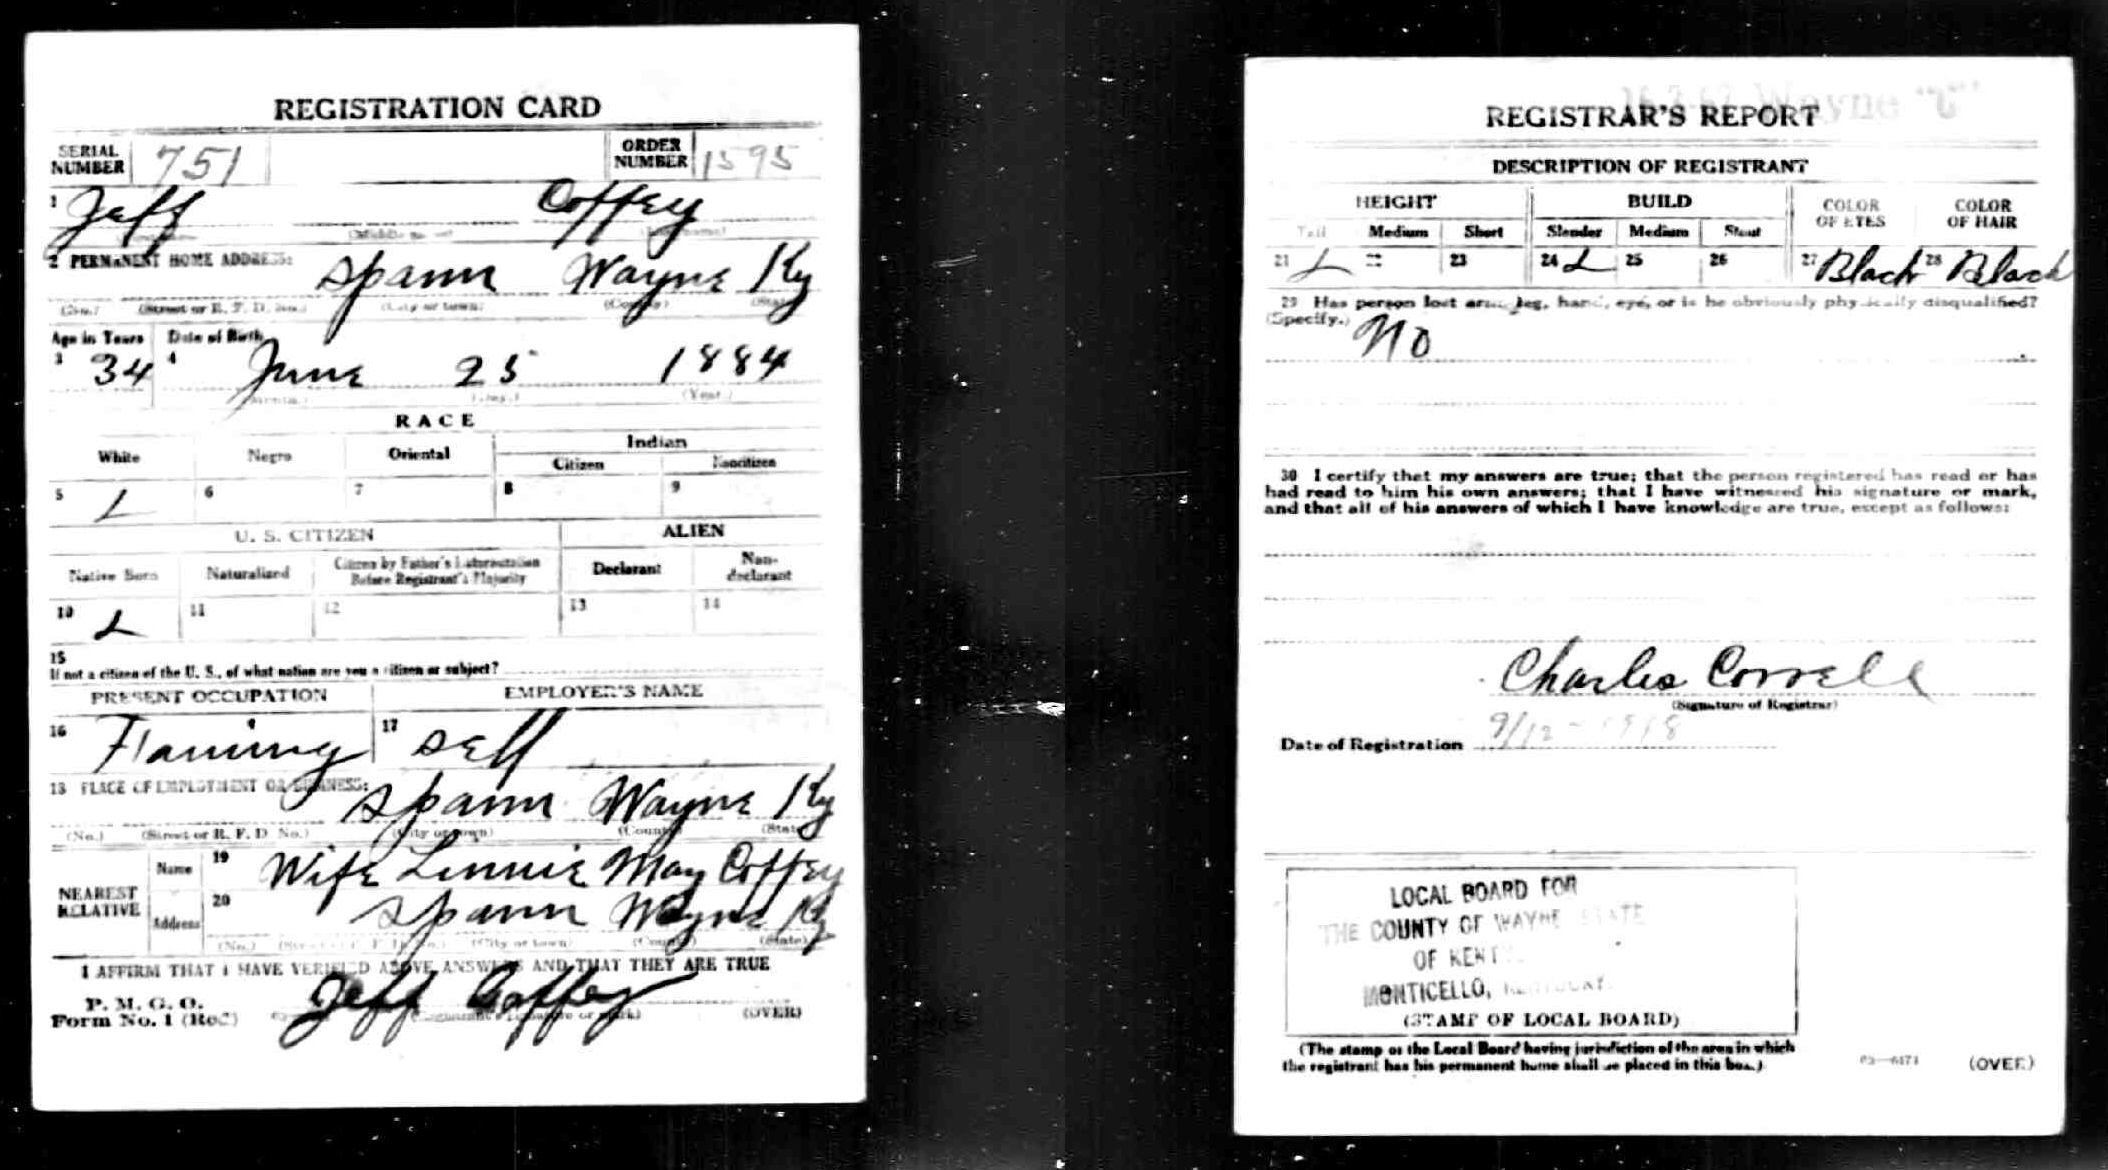 REGISTRATION CARD
SERIAL NUMBER 751 ORDER NUMBER 1595
1 Jeff Coffey
2 PERMANENT HOME ADDRESS: Spann Wayne Ky
(No.) (Street or R. F. D. No.) (City or town) (County) (State)
Age in Years Date of Birth
3 34 4 June 25 1884
(Month.) (Day.) (Year.)
RACE
White Negro Oriental Indian
Citizen Noncitizen
5 6 7 8 9
U. S. CITIZEN ALIEN
Native Born Naturalized Citizen by Father's Naturalization Before Registrant's Majority Declarant Non-declarant
10 11 12 13 14
15
If not a citizen of the U. S., of what nation are you a citizen or subject?
PRESENT OCCUPATION EMPLOYER'S NAME
16 Farming 17 Self
18 PLACE OF EMPLOYMENT OR BUSINESS: Spann Wayne Ky
(No.) (Street or R. F. D. No.) (City or town) (County) (State)
NEAREST RELATIVE Name 19 Wife Linnie May Coffey
Address 20 Spann Wayne Ky
(No.) (Street or R. F. D. No.) (City or town) (County) (State)
I AFFIRM THAT I HAVE VERIFIED ABOVE ANSWERS AND THAT THEY ARE TRUE
P. M. G. O.
Form No. 1 (Red) Jeff Coffey
(Registrant's signature or mark) (OVER)
Wayne "C"
REGISTRAR'S REPORT
DESCRIPTION OF REGISTRANT
HEIGHT BUILD COLOR OF EYES COLOR OF HAIR
Tall Medium Short Slender Medium Stout
21 22 23 24 25 26 27 Black 28 Black
29 Has person lost arm, leg, hand, eye, or is he obviously physically disqualified?
(Specify.) No
30 I certify that my answers are true; that the person registered has read or has
had read to him his own answers; that I have witnessed his signature or mark,
and that all of his answers of which I have knowledge are true, except as follows:
Charles Correll
(Signature of Registrar)
Date of Registration 9/12-1918
LOCAL BOARD FOR
THE COUNTY OF WAYNE STATE
OF KENTY.
MONTICELLO, KENTUCKY.
(STAMP OF LOCAL BOARD)
(The stamp of the Local Board having jurisdiction of the area in which
the registrant has his permanent home shall be placed in this box.)
03—6171 (OVER)